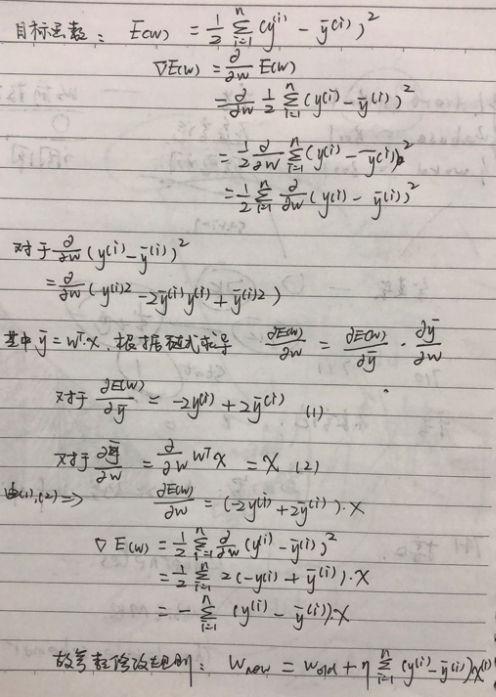 目标函数: E(w) = 1/2 Σ_{i=1}^{n} (y^(i) - ȳ^(i))^2
∇E(w) = ∂/∂w E(w)
= ∂/∂w 1/2 Σ_{i=1}^{n} (y^(i) - ȳ^(i))^2
= 1/2 ∂/∂w Σ_{i=1}^{n} (y^(i) - ȳ^(i))^2
= 1/2 Σ_{i=1}^{n} ∂/∂w (y^(i) - ȳ^(i))^2
对于 ∂/∂w (y^(i) - ȳ^(i))^2
= ∂/∂w (y^(i)2 - 2ȳ^(i)y^(i) + ȳ^(i)2)
其中 ȳ = w^T·x, 根据链式求导 ∂E(w)/∂w = ∂E(w)/∂ȳ · ∂ȳ/∂w
对于 ∂E(w)/∂ȳ = -2y^(i) + 2ȳ^(i) (1)
对于 ∂ȳ/∂w = ∂/∂w w^T x = x (2)
由(1),(2) => ∂E(w)/∂w = (-2y^(i) + 2ȳ^(i))·x
∇E(w) = 1/2 Σ_{i=1}^{n} ∂/∂w (y^(i) - ȳ^(i))^2
= 1/2 Σ_{i=1}^{n} 2(-y^(i) + ȳ^(i))·x
= - Σ_{i=1}^{n} (y^(i) - ȳ^(i))·x
故参数修改规则: w_new = w_old + η Σ_{i=1}^{n} (y^(i) - ȳ^(i))x^(i)